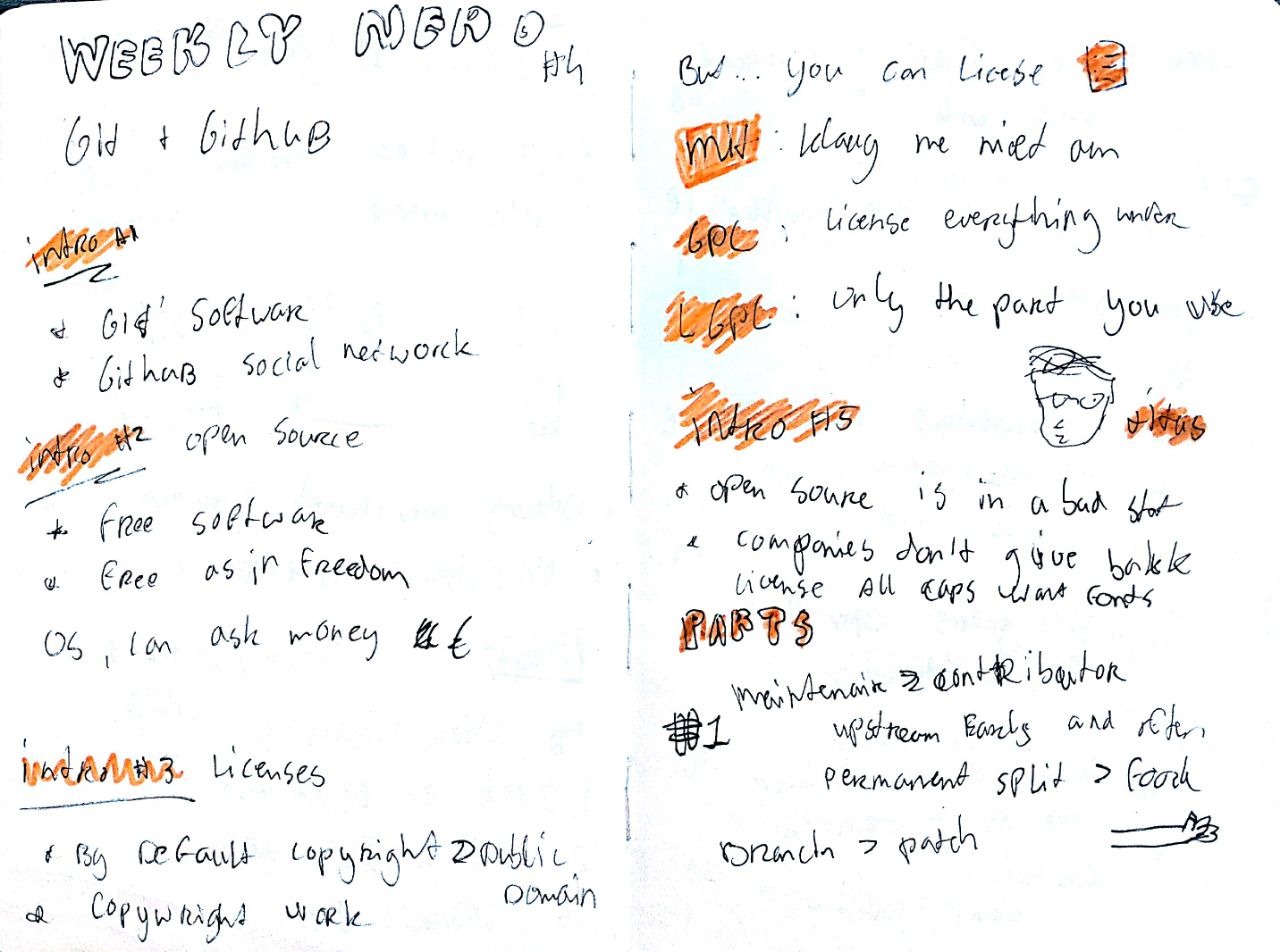 WEEKLY NERD
#4
Git + GitHub
intro #1
* Git' Software
* GitHub social networck
intro #2 open source
* Free software
* Free as in Freedom
OS, I can ask money €
intro #3 Licenses
* By Default copyright > public
Domain
* copywright work
But... you can License
MIT: klaag me niet aan
GPL: License everything under
LGPL: only the part you use
intro #5 titus
* open source is in a bad stat
* companies don't give back
License All caps want fonts
PARTS
#1 maintenair > contributor
upstream Early and often
permanent split > Foork
Branch > patch